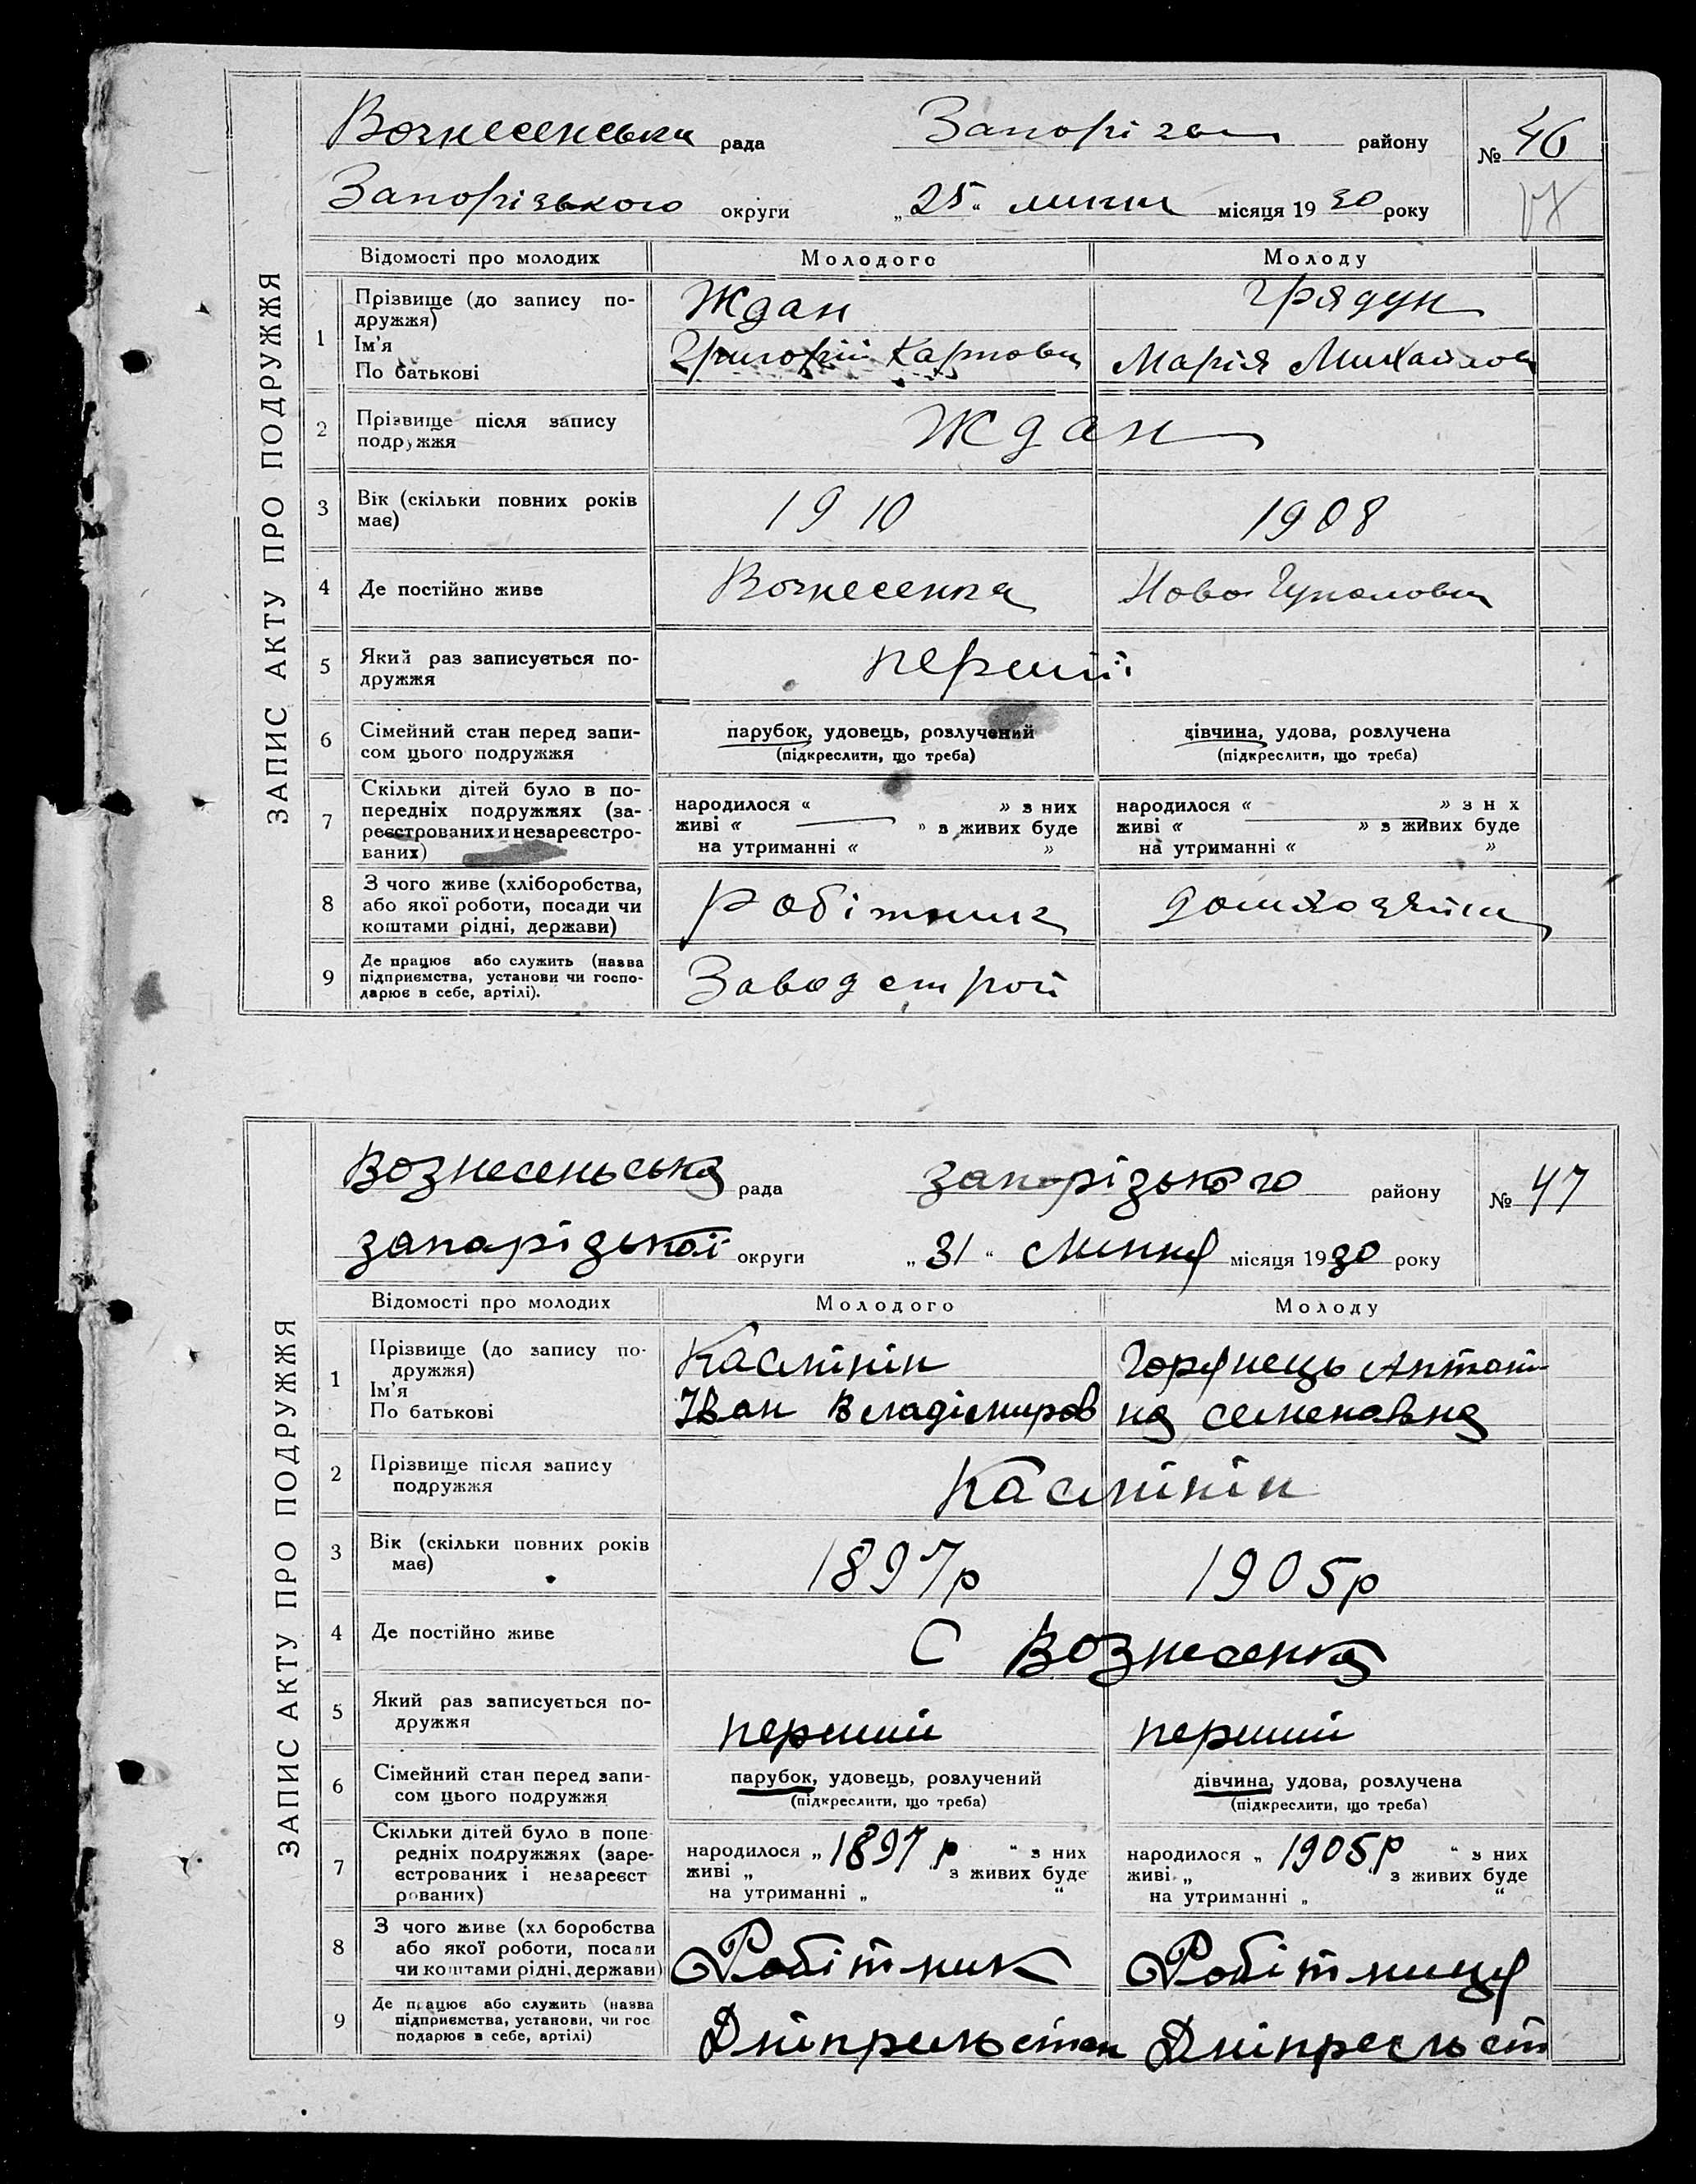 ЗАПИС АКТУ ПРО ПОДРУЖЖЯ
Вознесенська рада Запорізьк району № 46
Запорізького округи „25“ липня місяця 1930 року
Відомості про молодих Молодого Молоду
1 Прізвище (до запису по-
дружжя)
Ім'я
По батькові
Ждан
Григорій Карпович
Грядун
Марія Михайлов
2 Прізвище після запису
подружжя
Ждан
3 Вік (скільки повних років
має)
1910 1908
4 Де постійно живе Вознесенка Ново
5 Який раз записується по-
дружжя
перший
6 Сімейний стан перед запи-
сом цього подружжя
парубок, удовець, розлучений
(підкреслити, що треба)
дівчина, удова, розлучена
(підкреслити, що треба)
7 Скільки дітей було в по-
передніх подружжях (за-
реєстрованих и незареєстро-
ваних)
народилося « » з них
живі « » з живих буде
на утриманні « »
народилося « » з н х
живі « » з живих буде
на утриманні « »
8 З чого живе (хліборобства,
або якої роботи, посади чи
коштами рідні, держави)
робітник домхозяйка
9 Де працює або служить (назва
підприємства, установи чи госпо-
дарює в себе, артілі).
Заводстрой
ЗАПИС АКТУ ПРО ПОДРУЖЖЯ
Вознесеньська рада запорізького району № 47
запорізької округи „31“ Липня місяця 1930 року
Відомості про молодих Молодого Молоду
1 Прізвище (до запису по-
дружжя)
Ім'я
По батькові
Калінін
Іван Владіміров
Антоні
на семеновна
2 Прізвище після запису
подружжя
Калінін
3 Вік (скільки повних років
має)
1897р 1905р
4 Де постійно живе С Вознесенка
5 Який раз записується по-
дружжя
перший перший
6 Сімейний стан перед запи-
сом цього подружжя
парубок, удовець, розлучений
(підкреслити, що треба)
дівчина, удова, розлучена
(підкреслити, що треба)
7 Скільки дітей було в попе
редніх подружжях (заре-
єстрованих і незареєст
рованих)
народилося „ 1897 р “ з них
живі „ з живих буде
на утриманні „ “
народилося „ 1905р “ з них
живі „ з живих буде
на утриманні „ “
8 З чого живе (хл боробства
або якої роботи, посади
чи коштами рідні, держави)
Робітник Робітниця
9 Де працює або служить (назва
підприємства, установи, чи гос
подарює в себе, артілі)
Дніпрельстан Дніпрельст